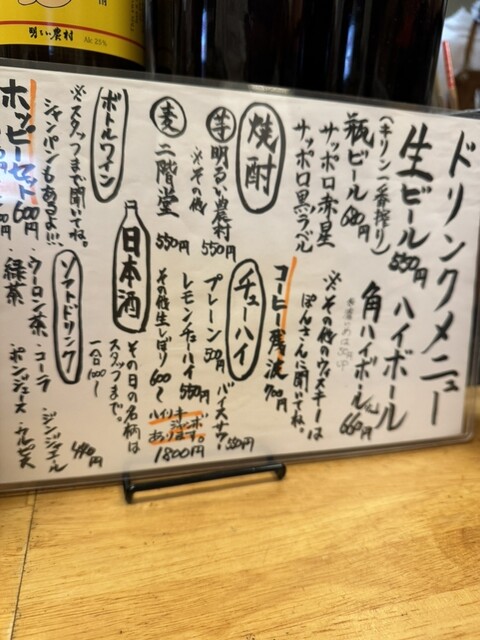 ドリンクメニュー
生ビール 550円
(キリン一番搾り)
瓶ビール 680円
サッポロ赤星
サッポロ黒ラベル
ハイボール
角ハイボール 660円
※その他のウィスキーは
ぽんさんに聞いてね。
焼酎
芋 明るい農村 550円
※その他
麦 二階堂 550円
コーヒー焼酎 700円
チューハイ
プレーン 500円
レモンチューハイ 550円
その他生しぼり 600〜
バイスサワー 550円
ジャンボ
あります。
1800円
ボトルワイン
※スタッフまで聞いてね。
シャンパンもあるよ!!!
日本酒
その日の名柄は
スタッフまで。
一合1000〜
ホッピーセット 600円
ソフトドリンク
・ウーロン茶 ・コーラ ・ジンジャエール
・緑茶 ・ポンジュース ・カルピス
明るい農村
Alc 25%